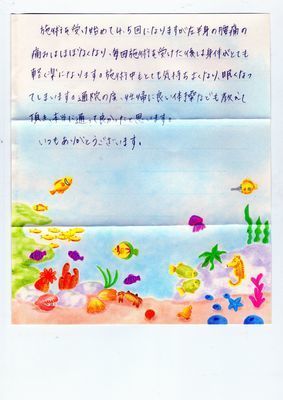 施術を受け始めて4、5回になりますが左半身の腰痛の
痛みはほぼなくなり、毎回施術を受けた後は身体がとても
軽く楽になります。施術中もとても気持ちよくなり、眠くなっ
てしまいます。通院の度、妊婦に良い体操なども教えて
頂き、本当に通って良かったと思います。
いつもありがとうございます。